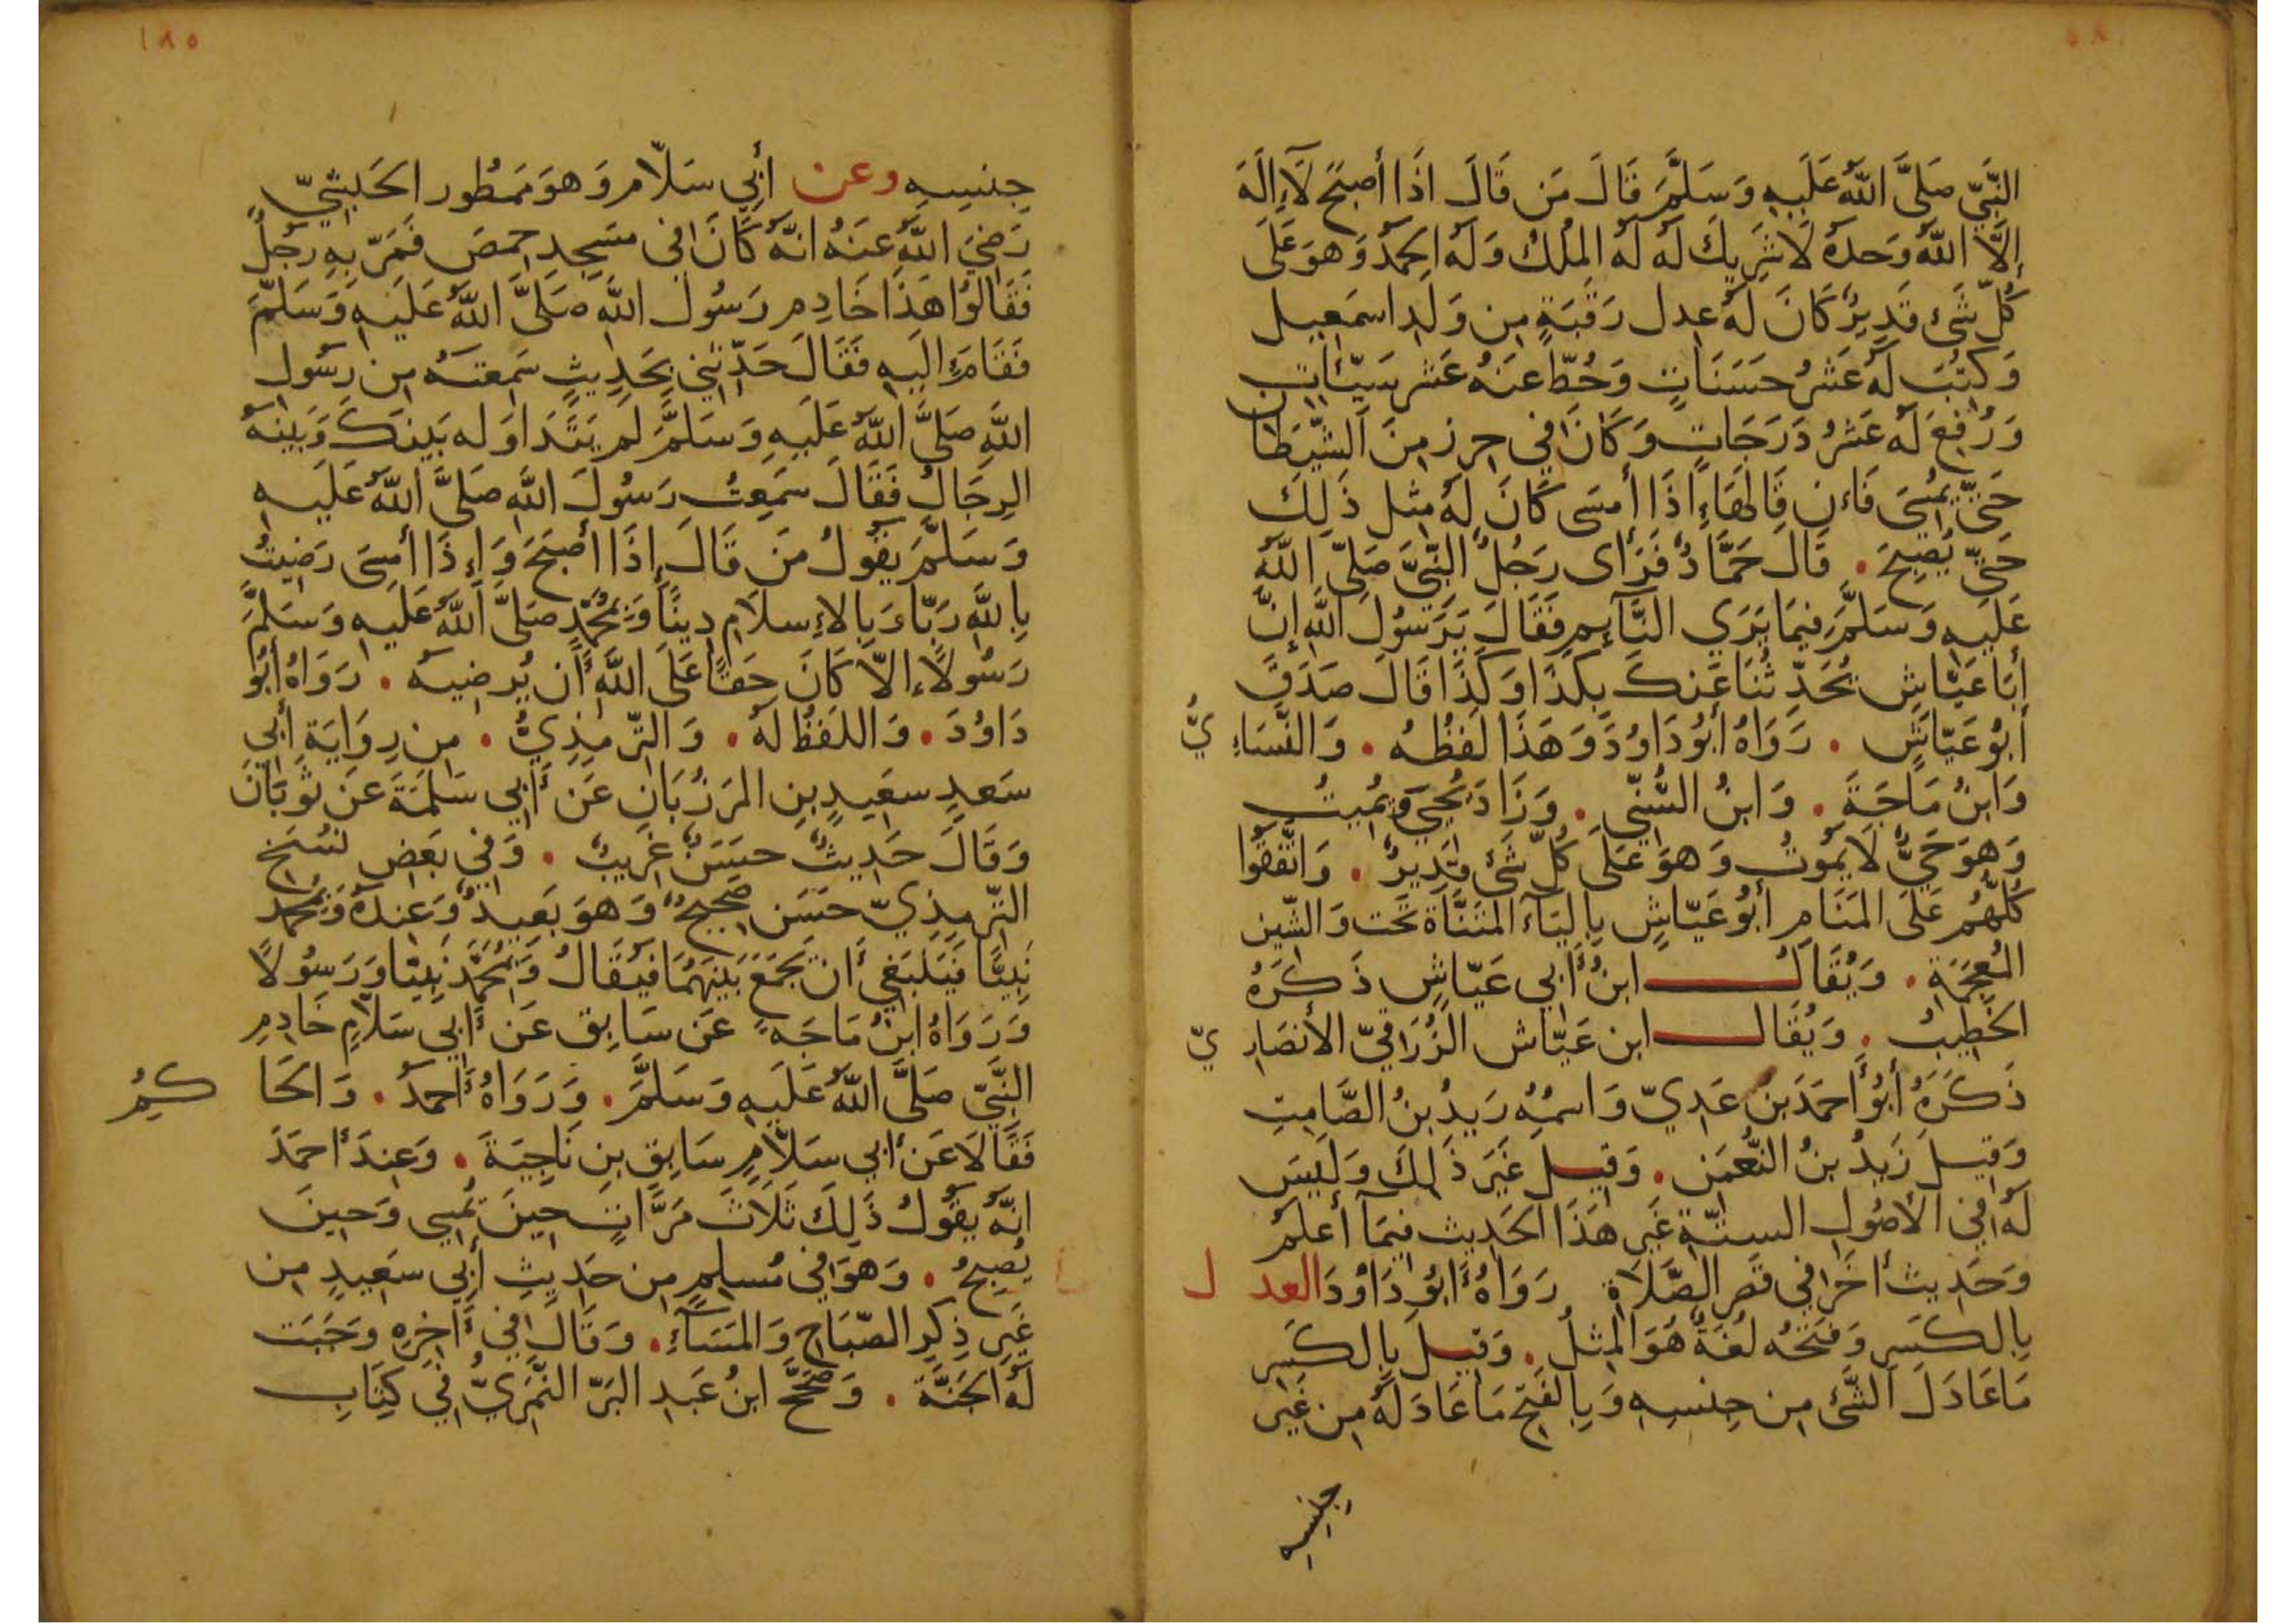 النَّبِيِّ صَلَّى اللَّهُ عَلَيهِ وَسَلَّمَ قَالَ مَن قَالَ اذَا أَصبَحَ لَا إِلَهَ
إِلَّا اللَّهُ وَحدَهُ لَا شَرِيكَ لَهُ لَهُ المُلكُ وَلَهُ الحَمدُ وَهوَ عَلَى
كُلِّ شَىءٍ قَدِيرٌ كَانَ لَهُ عِدل رَقَبَةٍ مِن وَلَدِ اسمَعِيل
وَكُتِبَ لَهُ عَشرُ حَسَنَاتٍ وَحُطَّ عَنهُ عَشر سَيِّئاتٍ
وَرُفِعَ لَهُ عَشرُ دَرَجَاتٍ وَكَانَ فِي حِرزٍ مِنَ الشَّيطَان
حَتَّى يُمسِىَ فَإن قَالَهَا إِذَا أَمسَى كَانَ لَهُ مِثل ذَلِكَ
حَتَّى يُصبِحَ . قَالَ حَمَّادٌ فَرَأى رَجُلٌ النَّبِيَّ صَلَّى اللَّهُ
عَلَيهِ وَسَلَّمَ فِيمَا يَرَى النَّآئِم فَقَالَ يَرَسُولَ اللَّهِ إِنَّ
أَبَا عَيَّاشٍ يُحَدِّثُنَا عَنكَ بِكَذَا وَكَذَا قَالَ صَدَقَ
أَبُو عَيَّاشٍ . رَوَاهُ أَبُو دَاوُدَ وَهَذَا لَفظُهُ . وَالنَّسَاءِيُّ
وَابنُ مَاجَةَ . وَابنُ السُّنِّي . وَزَادَ يُحيِي وَيُمِيتُ
وَهوَ حَيٌّ لَا يَمُوتُ وَهوَ عَلَى كُلِّ شَىءٍ قَدِيرٌ . وَاتَّفَقُوا
كُلُّهُم عَلَى المَنَامِ أَبُو عَيَّاشٍ بِاليَآءِ المُثَنَّاة تَحت وَالشّين
المُعجَمَة . وَيُقَالُ ابنُ أَبِي عَيَّاشٍ ذَكَرَهُ
الخَطِيبُ . وَيُقَال ابن عَيَّاش الزُّرَقِيّ الأَنصَارِيّ
ذَكَرَهُ أَبُو أَحمَدَ بن عَدِيّ وَاسمُهُ زَيدُ بنُ الصَّامِتِ
وَقِيلَ زَيدُ بنُ النُّعمَن . وَقِيل غَيرَ ذَلِكَ وَلَيسَ
لَهُ فِي الأُصُولِ الستَّةِ غَير هَذَا الحَدِيث فِيمَا أَعلَمُ
وَحَدِيث أخَر فِي قَصر الصَّلَاة رَوَاهُ أَبُو دَاوُدَ العدل
بِالكَسرِ وَفَتحُه لُغَةٌ هُوَ المِثلُ . وَقِيلَ بِالكَسرِ
مَا عَادَلَ الشَّىءَ مِن جِنسِهِ وَبِالفَتحِ مَا عَادَلَهُ مِن غَيرِ
جِنسِهِ
١٨٥
جِنسِهِ وعن أَبِي سَلَّام وَهوَ مَمطُور الحَبَشِيّ
رَضِيَ اللَّهُ عَنهُ انَّهُ كَانَ فِي مَسجِدِ حِمصَ فَمَرَّ بِهِ رَجُلٌ
فَقَالوُا هَذَا خَادِم رَسُول اللَّهِ صَلَّى اللَّهُ عَلَيهِ وَسَلَّمَ
فَقَامَ إِلَيهِ فَقَالَ حَدِّثنِي بِحَدِيثٍ سَمِعتَهُ مِن رَسُولِ
اللَّهِ صَلَّى اللَّهُ عَلَيهِ وَسَلَّمَ لَم يَتَدَاوَله بَينَكَ وَبَينَهُ
الرِجَالُ فَقَالَ سَمِعتُ رَسُولَ اللَّهِ صَلَّى اللَّهُ عَلَيهِ
وَسَلَّمَ يَقُولُ مَن قَالَ إِذَا أَصبَحَ وَإِذَا أَمسَى رَضِيتُ
بِاللَّهِ رَبًّا وَبِالإِسلَامِ دِينًا وَبِمُحَمَّدٍ صَلَّى اللَّهُ عَلَيهِ وَسَلَّمَ
رَسُولًا إلَّا كَانَ حَقًّا عَلَى اللَّهِ أَن يُرضِيَهُ . رَوَاهُ أَبُو
دَاوُدَ . وَاللَفظُ لَهُ . وَالتِّرمِذِيُّ . مِن رِوَايَةِ أَبِي
سَعدٍ سعَيدِ بنِ المَرزُبَانِ عَن أَبِي سَلَمَةَ عَن ثَوبَانَ
وَقَالَ حَدِيثٌ حَسَنٌ غَرِيبٌ . وَفِي بَعضِ نُسَخِ
التِّرمِذِيّ حَسَن صَحِيحٌ وَهوَ بَعِيدٌ وَعِندَهُ وَبِمُحَمَّد
نَبِيًّا فَيَنبَغِي أَن يَجمَعَ بَينَهُمَا فَيُقَالُ وَبِمُحَمَّدٍ نَبِيًّا وَرَسُولًا
وَرَوَاهُ ابنُ مَاجَه عَن سَابِق عَن أَبِي سَلَّامٍ خَادِمِ
النَّبِيِّ صَلَّى اللَّهُ عَلَيهِ وَسَلَّمَ . وَرَوَاهُ أَحمَدُ . وَالحَاكِمُ
فَقَالَا عَن أَبِي سَلَّامٍ سَابِقِ بنِ نَاجِيَةَ . وَعِندَ أَحمَدَ
انَّهُ يَقُولُ ذَلِكَ ثَلَاثَ مَرَّاتٍ حِينَ يُمسِي وَحِينَ
يُصبِحُ . وَهوَ فِي مُسلِمٍ مِن حَدِيثِ أَبِي سَعِيدٍ مِن
غَيرِ ذِكرِ الصَّبَاحِ وَالمَسَآءِ . وَقَالَ فِي أَخِرِهِ وَجَبَت
لَهُ الجَنَّةَ . وَصَحَّحَ ابنُ عَبدِ البَرّ النَّمَرِيُّ فِي كِتَابِ